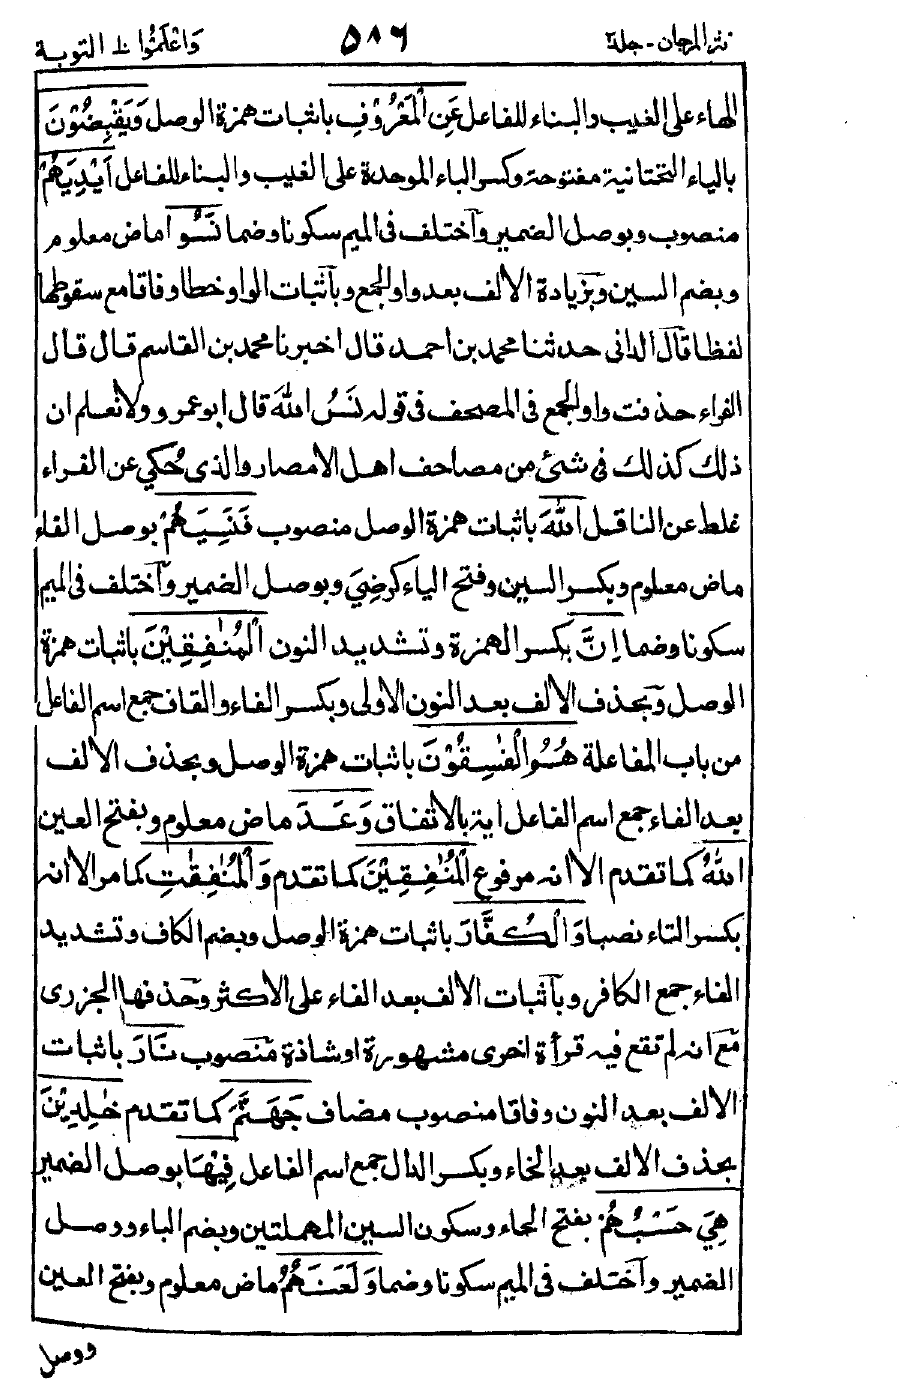 نثر المرجان - جلد٢ ٥٨٦ وَاعْلَمُوْا ١٠ التوبة
الهاء على الغيب والبناء للفاعل عَنِ الْمَعْرُوْفِ باثبات همزة الوصل وَيَقْبِضُوْنَ
بالياء التحتانية مفتوحة وكسر الباء الموحدة على الغيب والبناء للفاعل اَيْدِيَهُمْ
منصوب وبوصل الضمير وآختلف فى الميم سكونا وضما نَسُوا ماض معلوم
وبضم السين وبزيادة الالف بعد واو الجمع وبآثبات الواو خطا وفاقا مع سقوطها
لفظا قآل الدانى حدثنا محمد بن احمد قال اخبرنا محمد بن القاسم قال قال
الفراء حذفت واو الجمع فى المصحف فى قوله نَسُ اللهَ قال ابو عمرو ولا نعلم ان
ذلك كذلك فى شئ من مصاحف اهل الامصار والذى حُكي عن الفراء
غلط عن الناقل اللهَ باثبات همزة الوصل منصوب فَنَسِيَهُمْ بوصل الفاء
ماض معلوم وبكسر السين وفتح الياء كرضِيَ وبوصل الضمير وآختلف فى الميم
سكونا وضما اِنَّ بكسر الهمزة وتشديد النون الْمُنٰفِقِيْنَ باثبات همزة
الوصل وبحذف الالف بعد النون الاولى وبكسر الفاء والقاف جمع اسم الفاعل
من باب المفاعلة هُمُ الْفٰسِقُوْنَ باثبات همزة الوصل وبحذف الالف
بعد الفاء جمع اسم الفاعل اية بالاتفاق وَعَدَ ماض معلوم وبفتح العين
اللهُ كما تقدم الا انه مرفوع الْمُنٰفِقِيْنَ كما تقدم وَالْمُنٰفِقٰتِ كما مر الا انه
بكسر التاء نصبا وَالْكُفَّارَ باثبات همزة الوصل وبضم الكاف وتشديد
الفاء جمع الكافر وبآثبات الالف بعد الفاء على الاكثر وحذفها الجزرى
مع انه لم تقع فيه قرأة اخرى مشهورة او شاذة منصوب نَارَ باثبات
الالف بعد النون وفاقا منصوب مضاف جَهَنَّمَ كما تقدم خٰلِدِيْنَ
بحذف الالف بعد الخاء وبكسر الدال جمع اسم الفاعل فِيْهَا بوصل الضمير
هِيَ حَسْبُهُمْ بفتح الحاء وسكون السين المهملتين وبضم الباء ووصل
الضمير وآختلف فى الميم سكونا وضما وَلَعَنَهُمُ ماض معلوم وبفتح العين
ووصل